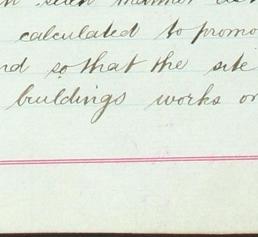 such manner as
calculated to promo
nd so that the site
buildings works or